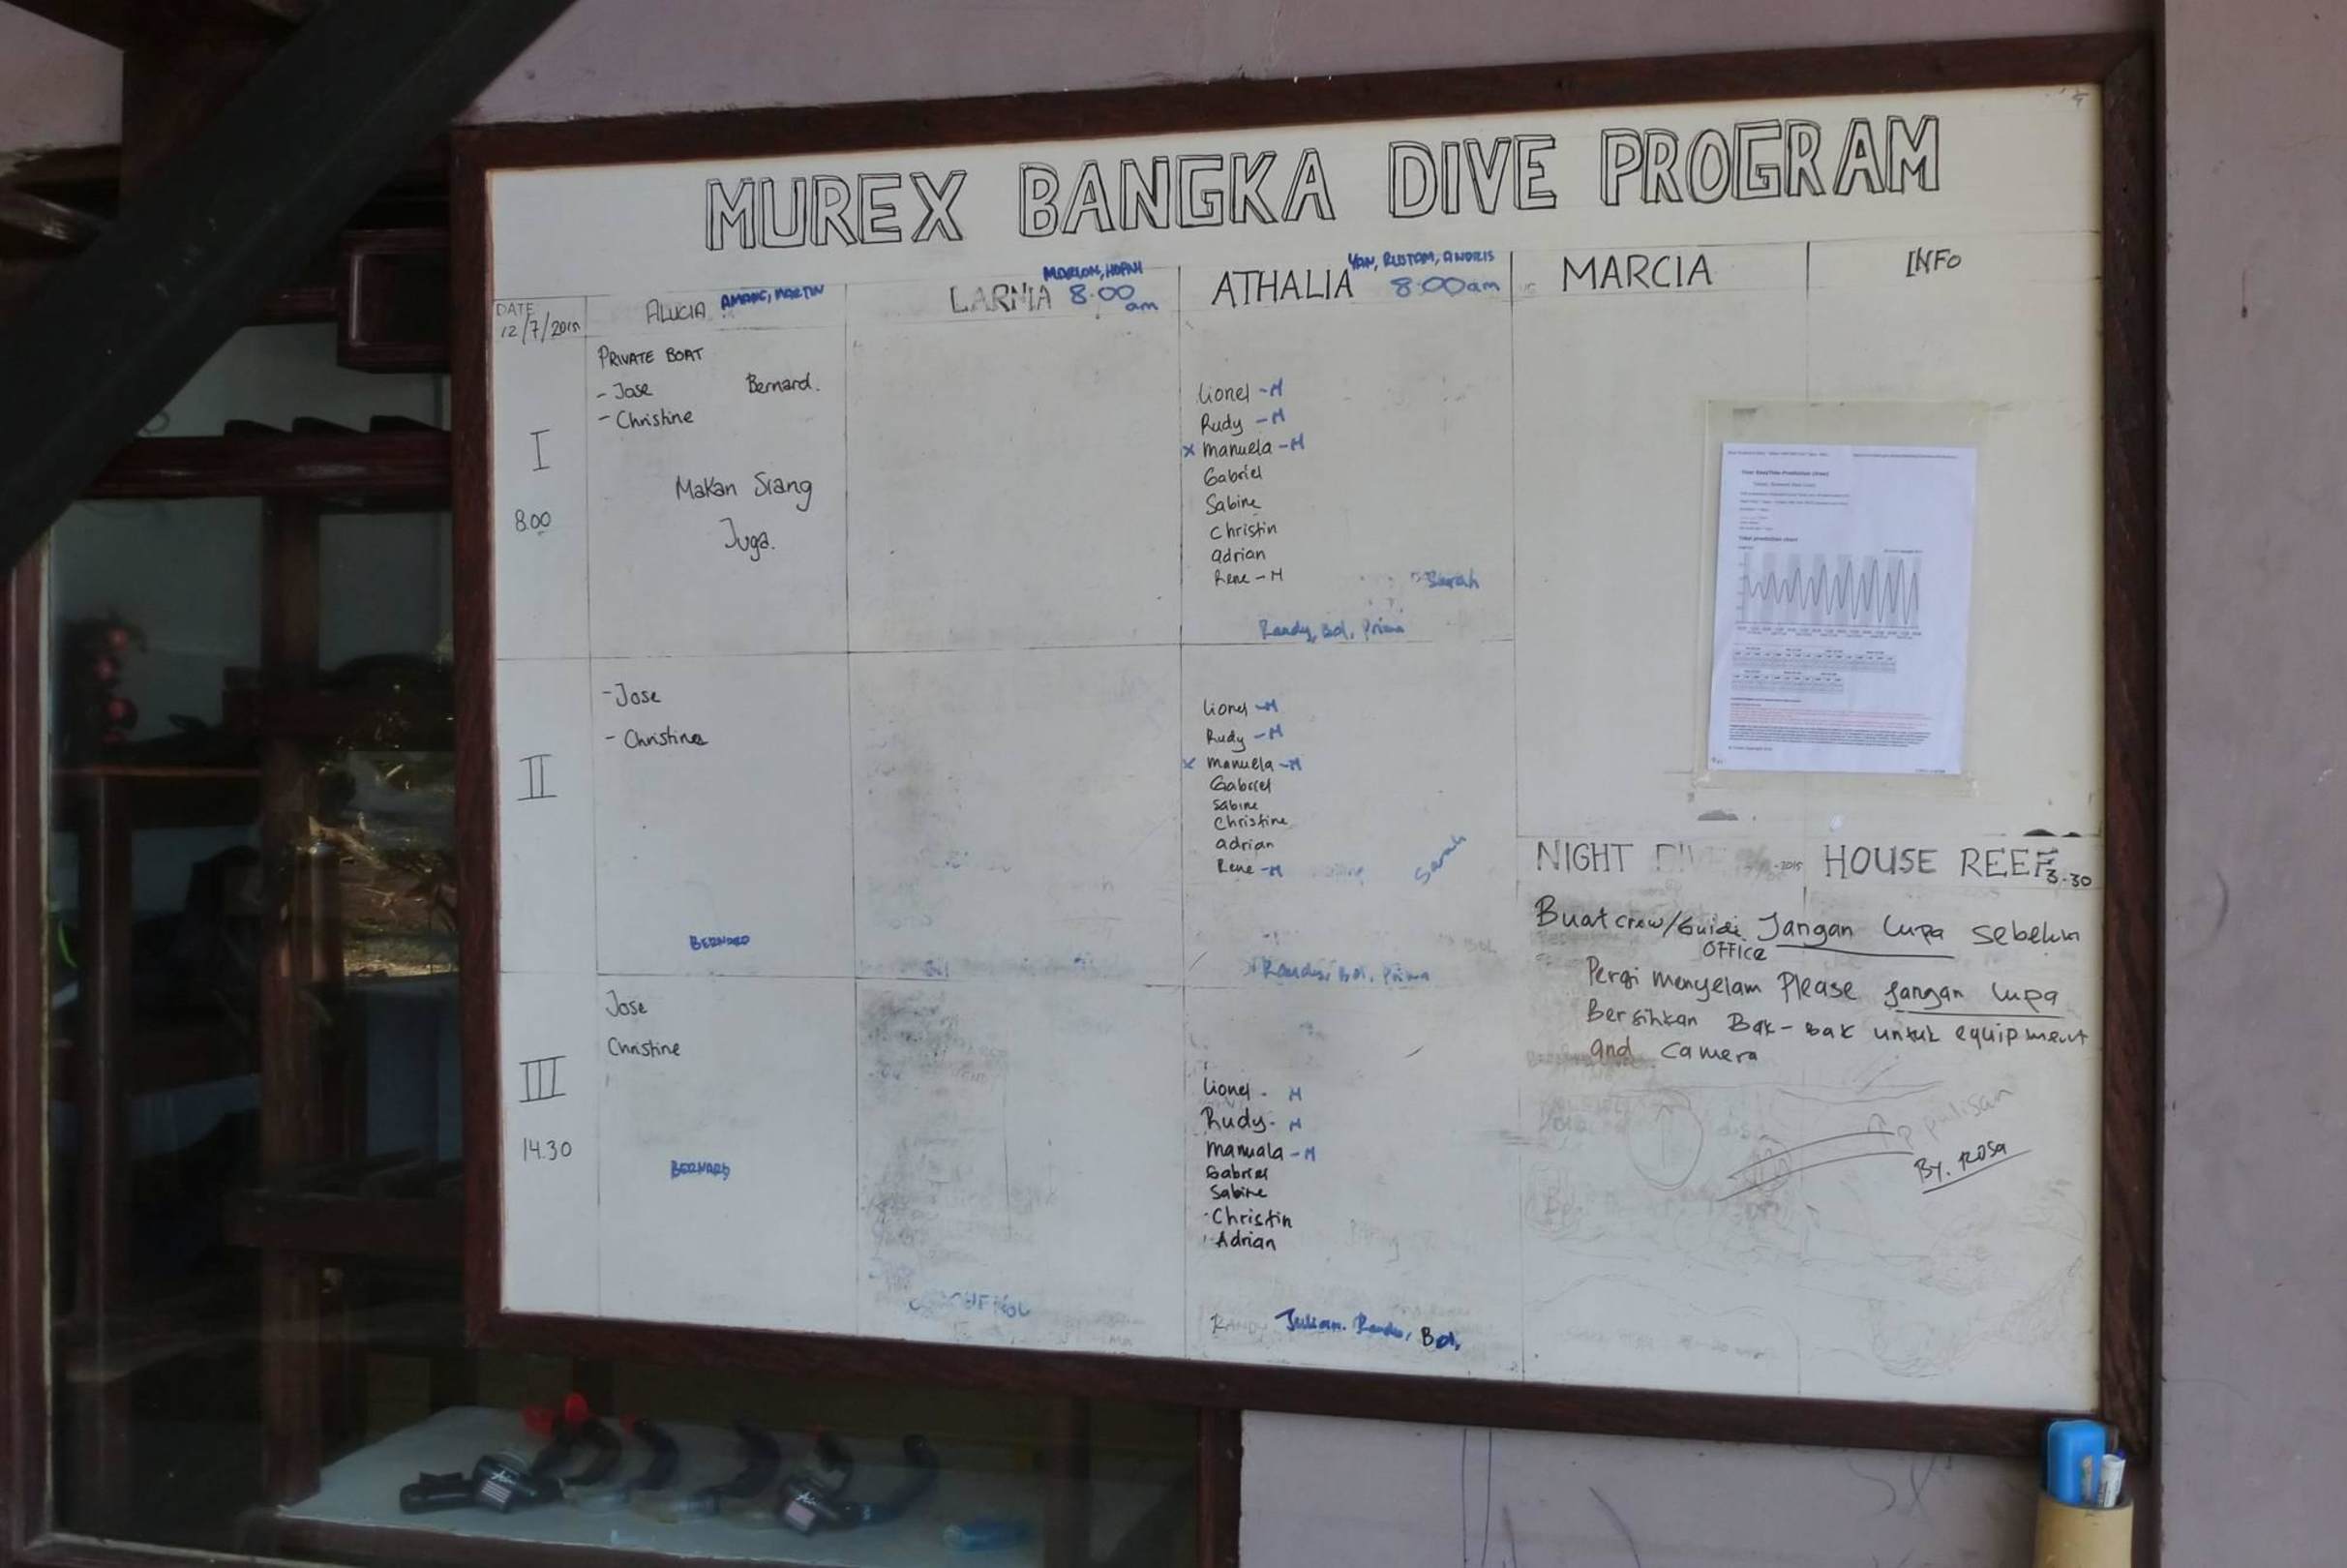 MUREX BANGKA DIVE PROGRAM
DATE
12/7/2015
ALUCIA AMANG, MARTIN
MARLON, HOFNI
LARNIA 8:00 am
YAN, RUSTAM, ANDRIS
ATHALIA 8:00am
MARCIA
INFO
I
8.00
PRIVATE BOAT
- Jose Bernard.
- Christine
Makan Siang
Juga.
Lionel - M
Rudy - M
x Manuela - M
Gabriel
Sabine
Christin
adrian
Rene - M
Sarah
Randy, Bol, Prima
II
- Jose
- Christine
BERNARD
Lionel - M
Rudy - M
x Manuela - M
Gabriel
Sabine
Christine
adrian
Rene - M
Sarah
Randy, Bol, Prima
III
14.30
Jose
Christine
BERNARD
Lionel - M
Rudy - M
Manuala - M
Gabriel
Sabine
Christin
Adrian
RANDY Julian. Randy, Bol,
Tidal prediction chart
NIGHT DIVE -2015
HOUSE REEF 3.30
Buat crew/Guide Jangan lupa sebelum
OFFICE
Pergi menyelam Please jangan lupa
Bersihkan Bak-bak untuk equipment
and camera
By. ROSA